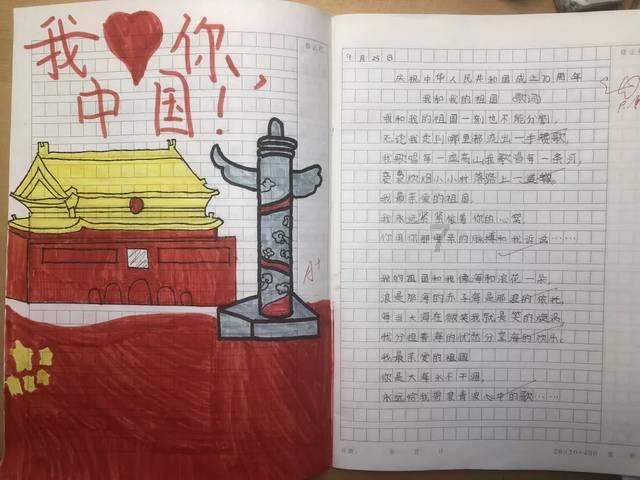 我❤你，
中国！
A+
9月25日
庆祝中华人民共和国成立70周年
我和我的祖国 歌词
我和我的祖国一刻也不能分割，
无论我走到哪里都流出一手赞歌，
我歌唱每一座高山我歌唱每一条河，
袅袅炊烟小小村落路上一道辙。
我最亲爱的祖国，
我永远紧紧依着你的心窝，
你用你那母亲的脉搏和我诉说……
我的祖国和我像海和浪花一朵，
浪是那海的赤子海是那浪的依托，
每当大海在微笑我就是笑的旋涡，
我分担着海的忧愁分享海的欢乐。
我最亲爱的祖国
你是大海永不干涸，
永远给我碧浪清波心中的歌……
20×20=400